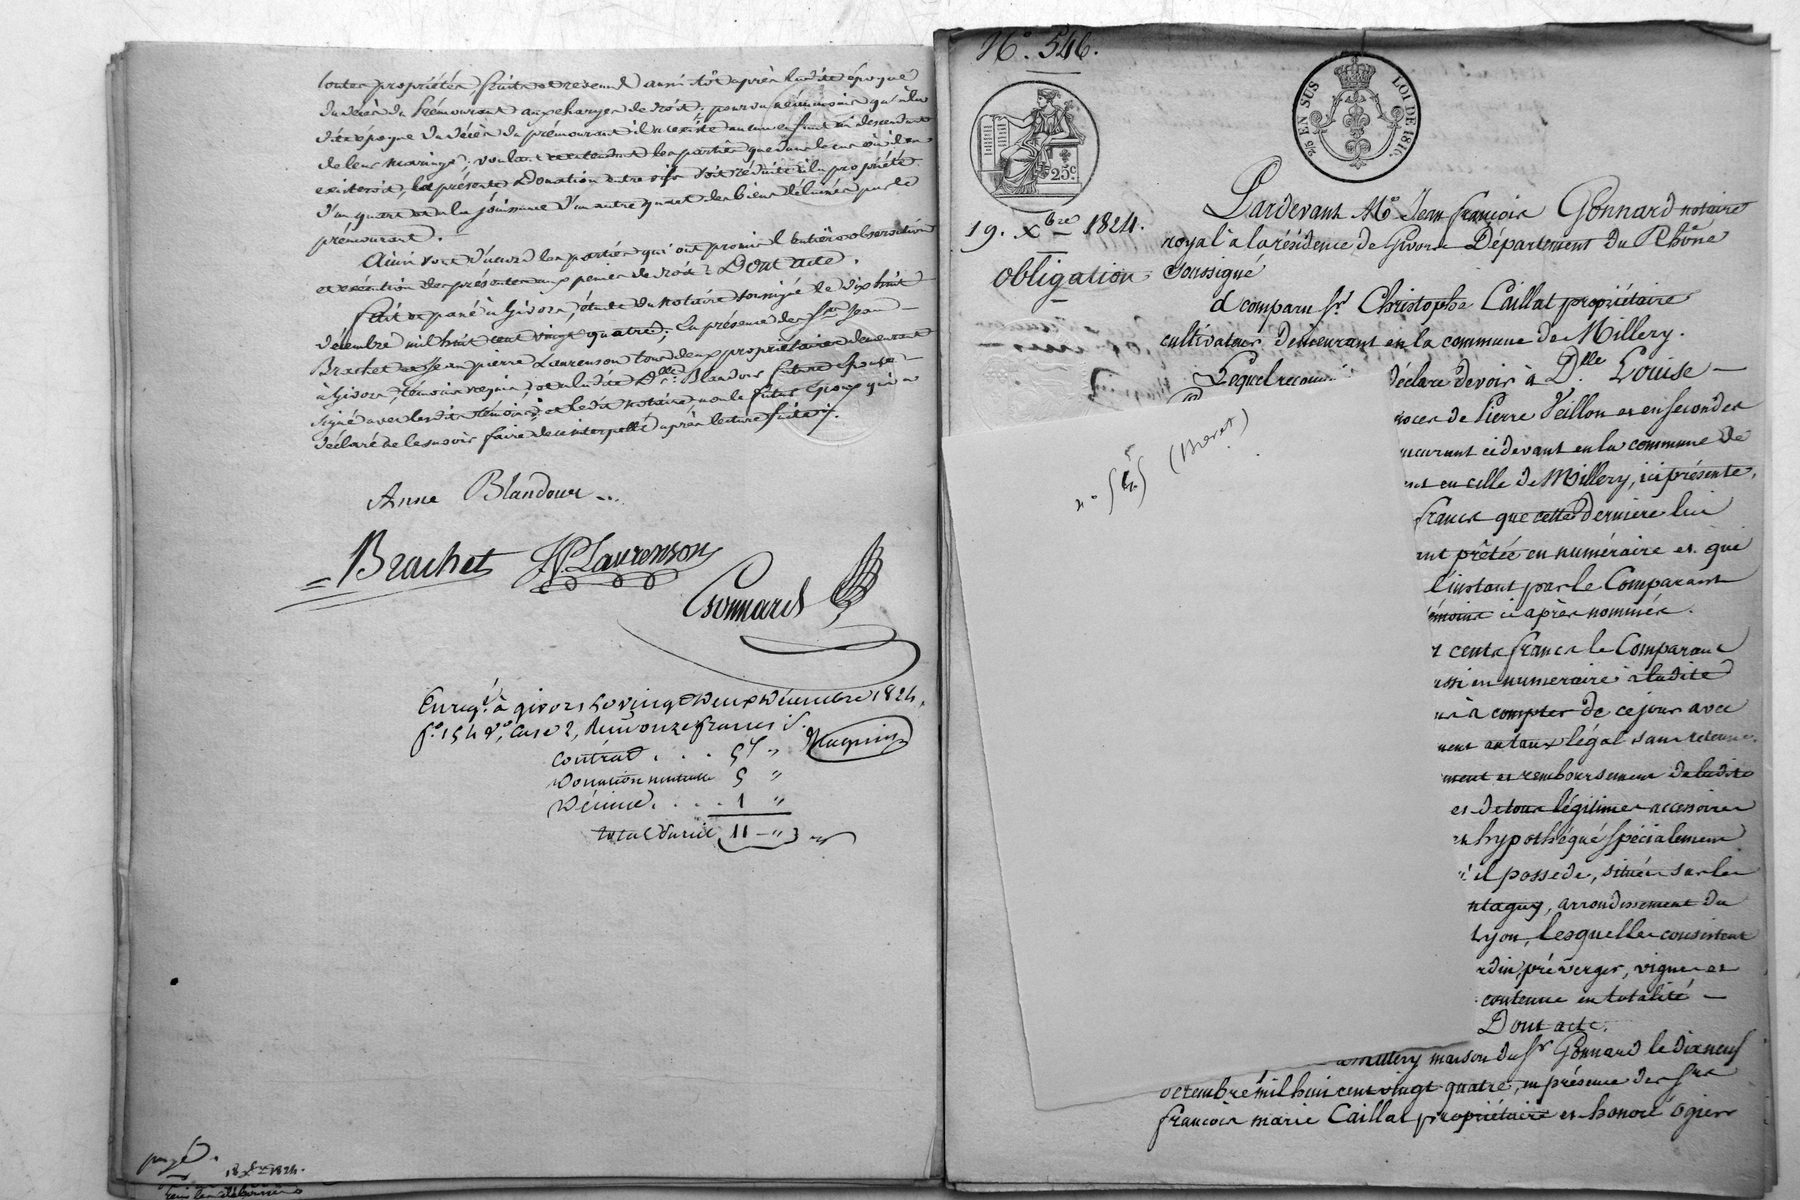 toutes propriétés, fruits et revenus aussi tôt après ladite époque
du décès du prémourant aux charges de droit; pourvu néanmoins qu'à la
dite époque du décès du prémourant il n'existe aucun enfant ni descendant
de leur mariage; voulant les parties que dans le cas où il en
existeroit, la présente Donation entre vifs soit réduite à la propriété
d'un quart et à la jouissance d'un autre quart des biens délaissés par le
prémourant.
Ainsi sont d'accord les parties qui ont promis l'entière observation
et exécution des présentes aux peines de droit: Dont acte.
Fait et passé à Givors, étude du notaire soussigné le dix huit
décembre mil huit cent vingt quatre; En présence des Srs Jean
Brachet et Jean pierre Laurenson tous deux propriétaires demeurant
à Givors, témoins requis, et ladite Dlle Blandour future Epouse
signé avec lesdits témoins et ledit notaire, non le futur Epoux qui a
déclaré ne le savoir faire de ce interpellé après lecture faite.
Anne Blandour
Brachet JP. Laurenson
Gonnard
Enregé à givors le vingt deux Décembre 1824,
fo. 154 vo, Case 2, Reçu onze francs
contrat . . . 5 "
Donation mutuelle 5 "
Décime . . . . 1 "
total Onze 11 - "
18 Xbre 1824.
No. 546.
25 EN SUS LOI DE 1816.
25c
19. Xbre 1824.
Obligation
Pardevant Me Jean françois Gonnard notaire
royal à la résidence de Givors Département du Rhône
soussigné
a comparu Sr. Christophe Caillat propriétaire
cultivateur demeurant en la commune de Millery.
Lequel reconnu
déclare devoir à Dlle Louise
noces de Pierre Veillon et en secondes
meurant cidevant en la commune de
ent en celle de Millery, ici présente,
francs que cette dernière lui
ent prêtée en numéraire et que
l'instant par le Comparant
émoins ci après nommés.
t cents francs le Comparant
ussi en numeraire à ladite
us à compter de ce jour avec
ment au taux légal sans retenue
ment et remboursement de ladite
et de tous légitimes accessoires
hypothéqué spécialement
'il possede, situées sur les
ntagny, arrondissement du
Lyon, lesquelles consistent
rdin, pré verger, vignes et
contenue en totalité
Dont acte.
a millery maison du Sr Gonnard le dixneuf
décembre mil huit cent vingt quatre, en présence des Srs
françois marie Caillat propriétaire et honoré ogier